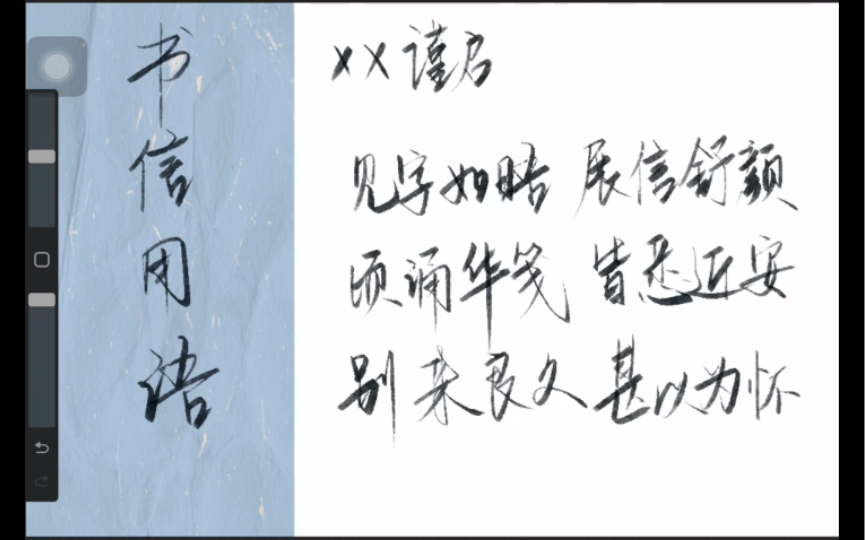 书信用语
××谨启
见字如晤 展信舒颜
顷诵华笺 皆悉近安
别来良久 甚以为怀